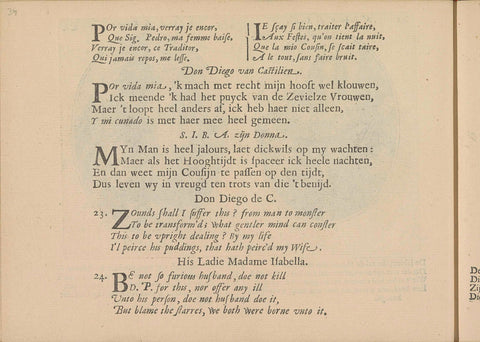 POr vida mia, verray je encor,
Que Sig. Pedro, ma femme baise,
Verray je encor, ce Traditor,
Qui jamais repos, me lesse.
IE sçay si bien, traiter l'affaire,
Aux Festes, qu'on tient la nuit,
Que la mio Cousin, se sçait taire,
A le tout, sans faire bruit.
Don Diego van Castilien.
POr vida mia, 'k mach met recht mijn hooft wel klouwen,
Ick meende 'k had het puyck van de Zevielze Vrouwen,
Maer 't loopt heel anders af, ick heb haer niet alleen,
T mi cunado is met haer mee heel gemeen.
S. I. B. A. zijn Donna.
MYn Man is heel jalours, laet dickwils op my wachten:
Maer als het Hooghtijdt is spaceer ick heele nachten,
En dan weet mijn Cousijn te passen op den tijdt,
Dus leven wy in vreugd ten trots van die 't benijd.
Don Diego de C.
23. ZOunds shall I suffer this? from man to monster
To be transform'd; what gentler mind can conster
This to be upright dealing? By my life
I'l peirce his puddings, that hath peirc'd my Wife.
His Ladie Madame Isabella.
24. BE not so furious husband, doe not kill
D. P. for this, nor offer any ill
Unto his person, doe not husband doe it,
But blame the starres, we both were borne unto it.
De
Di
Zij
Die